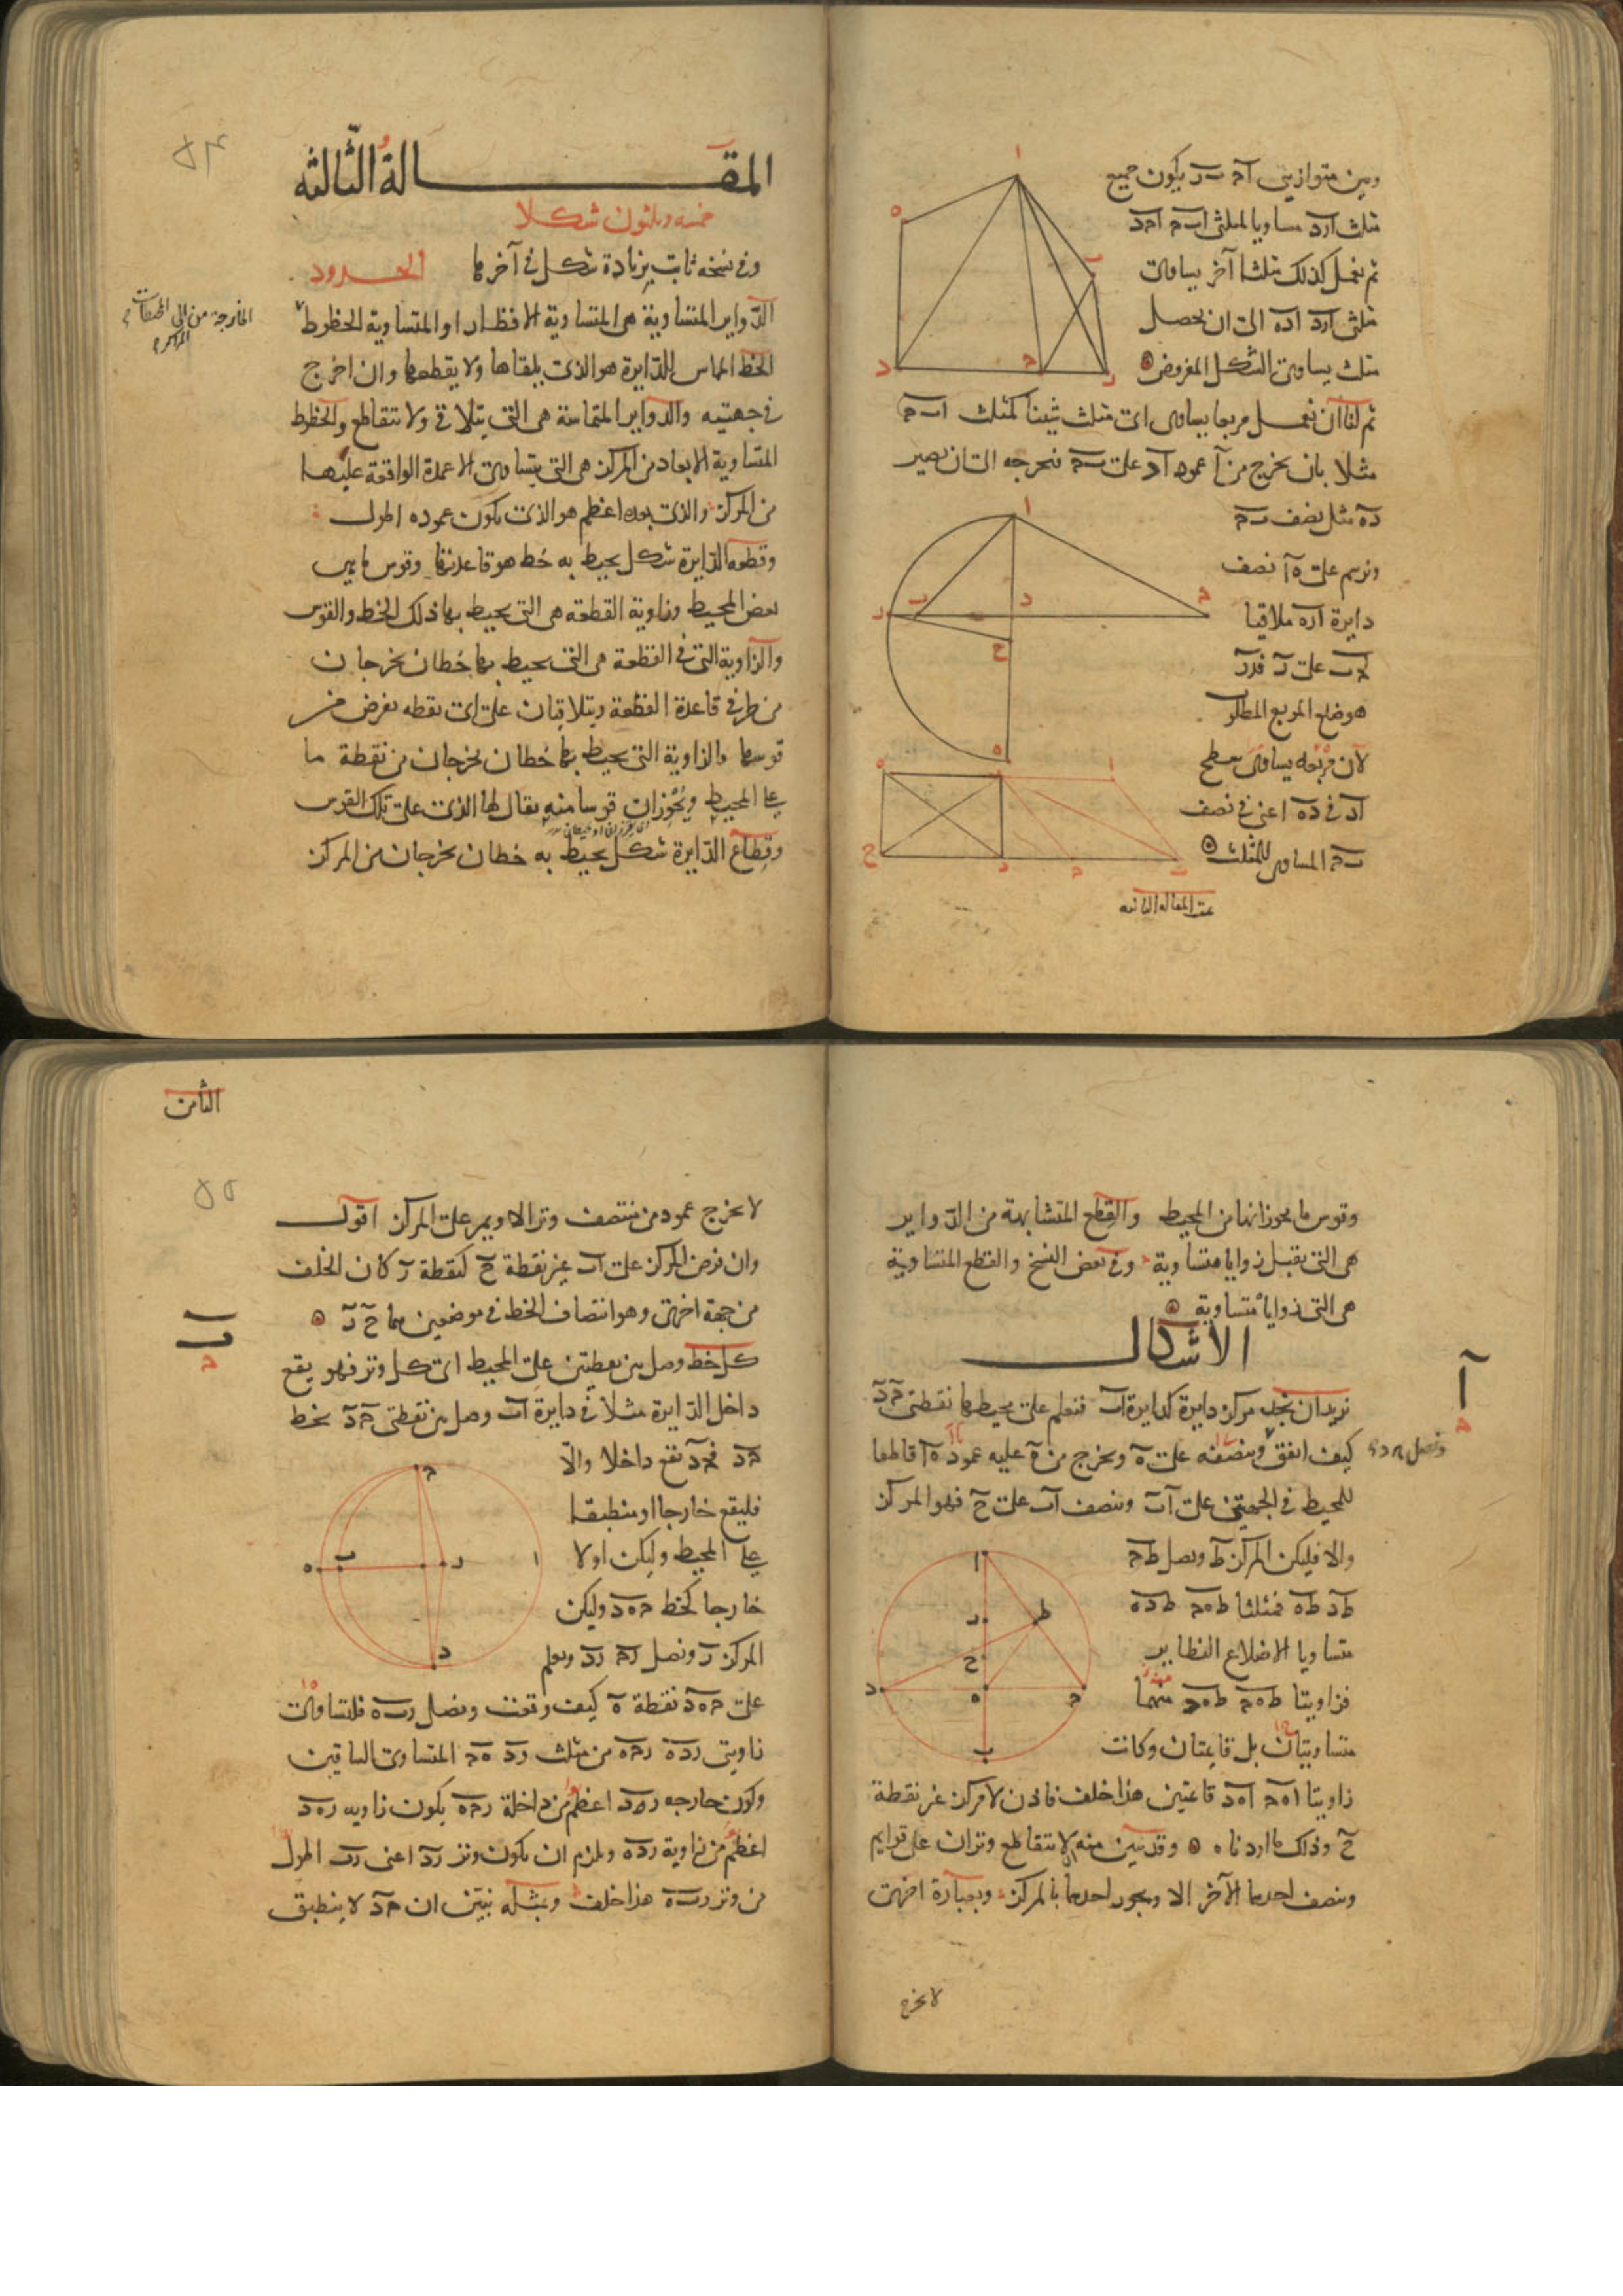 وبين متوازيى اح ب ر يكون جميع
مثلث ا ر د مساويا لمثلثى ا ب ح ا ح د
ثم نعمل كذلك مثلثا آخر يساوى
مثلثى ا ر د ا د ه الى ان يحصل
مثلث يساوى الشكل المفروض
ثم لنا ان نعمل مربعا يساوى اى مثلث شيئا كمثلث ا ب ح
مثلا بان نخرج من ا عمود ا د على ب ح نخرجه الى ان يصير
د ه مثل نصف ب ح
ونرسم على ه ا نصف
دايرة ا ر ه ملاقيا
ل ح ب على ر فد ر
هو ضلع المربع المطلوب
لان مربعه يساوى سطح
ا د فى د ه اعنى فى نصف
ب ح المساوى للمثلث
تمت المقالة الثانيه
٥٤
المقالة الثالثه
خمسه وثلثون شكلا
وفى نسخة ثابت بزيادة شكل فى آخرها الحدود
الدواير المتساوية هى المتساوية الاقطار او المتساوية الخطوط
الخارجة من الى المحيطات
المراكز
الخط المماس للدايرة هو الذى يلقاها ولا يقطعها وان اخرج
فى جهتيه والدواير المتماسة هى التى يتلاقى ولا تتقاطع والخطوط
المتساوية الابعاد من المركز هى التى يتساوى الاعمدة الواقعة عليها
من المركز والذى بعده اعظم هو الذى يكون عموده اطول
وقطعه الدايرة شكل يحيط به خط هو قاعدتها وقوس ما من
بعض المحيط وزاوية القطعة هى التى يحيط بها ذلك الخط والقوس
والزاوية التى فى القطعة هى التى يحيط بها خطان يخرجان
من طرفى قاعدة القطعة ويتلاقيان على اى نقطه تفرض من
قوسها والزاوية التى يحيط بها خطان يخرجان من نقطة ما
على المحيط ويحوزان قوسا منه يقال لها الذى على تلك القوس
وقطاع الدايرة شكل يحيط به خطان يخرجان من المركز
وقوس ما يحوزانها من المحيط والقطع المتشابهة من الدواير
هى التى يقبل زوايا متساوية وفى بعض النسخ والقطع المتساوية
هى التى زوايا متساوية
الاشكال
ا
نريد ان نجد مركز دايرة كدايرة ا ب فنعلم على محيطها نقطتى ح د
ونصل ح د
كيف اتفق وننصفه على ه ونخرج من ه عليه عمود ه ا قاطعا
للمحيط فى الجهتين على ا ب وننصف ا ب على ح فهو المركز
والا فليكن المركز ط ونصل ط ح
ط د ط ه فمثلثا ط ه ح ط د ه
متساويا الاضلاع النظاير
فزاويتا ط ه ح ط ه د منهما
متساويتان بل قايمتان وكانت
زاويتا ا ه ح ا ه د قايمتين هذا خلف فاذن لا مركز غير نقطة
ح وذلك ما اردناه وقد تبين منه لا يتقاطع وتران على قوايم
وينصف احدهما الآخر الا ويجوز احدهما بالمركز وبعبارة اخرى
لا يخرج
الثامن
٥٥
لا يخرج عمود من منتصف وتر الا ويمر على المركز اقول
وان فرض المركز على ا ب غير نقطة ح كنقطة ر كان الخلف
من جهة اخرى وهو انتصاف الخط فى موضعين هما ح ر
ب
كل خط وصل بين نقطتين على المحيط اى كل وتر فهو يقع
داخل الدايرة مثلا فى دايرة ا ب وصل بين نقطتى ح د بخط
ح د فح د يقع داخلا والا
فليقع خارجا او منطبقا
على المحيط وليكن اولا
خارجا كخط ح ه د وليكن
المركز ر ونصل ر ح ر د ونعلم
على ح ه د نقطة ه كيف وقعت ونصل ر ب ه فلتساوى
زاويتى ر د ه ر ح ه من مثلث ر د ه ح المتساوى الساقين
وكون خارجه ر ه د اعظم من داخلة ر ح ه يكون زاويه ر ه د
اعظم من زاوية ر د ه ويلزم ان يكون وتر ر د اعنى ر ب اطول
من وتر ر ب ه هذا خلف وبمثله نبين ان ح د لا ينطبق